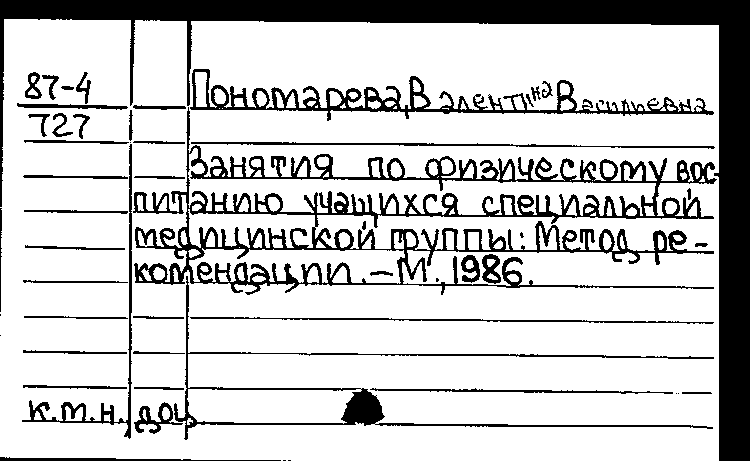 87-4 Пономарева, Валентина Васильевна
727
Занятия по физическому вос-
питанию учащихся специальной
медицинской группы: Метод. ре-
комендации. – М., 1986.
к.т.н., доц.